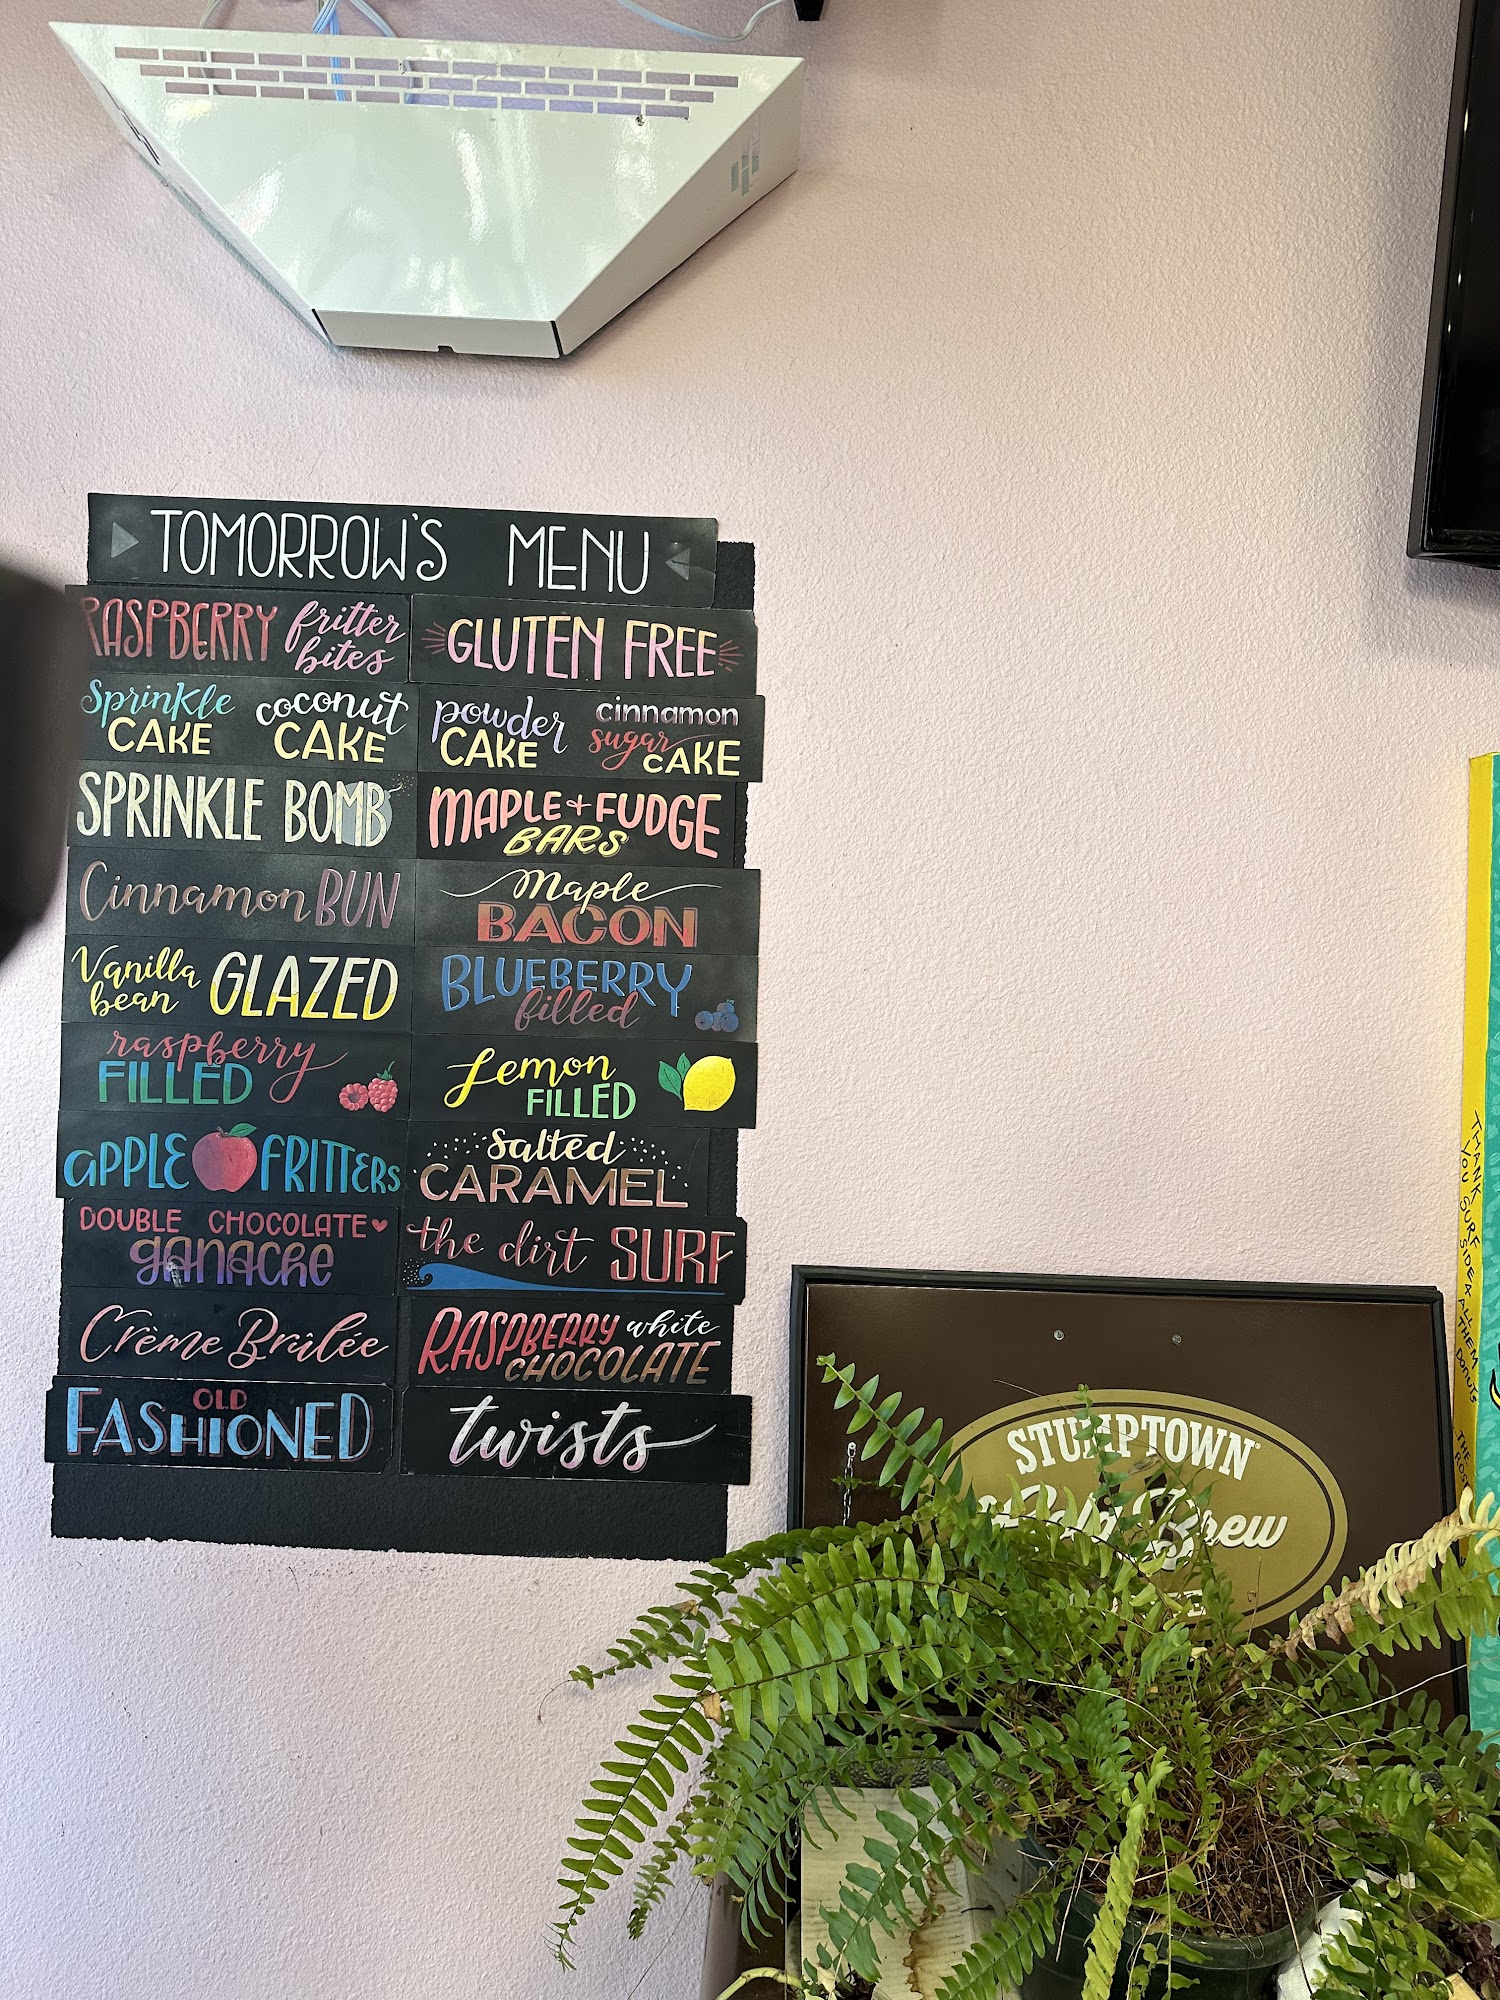 TOMORROW'S MENU
RASPBERRY fritter bites
GLUTEN FREE
Sprinkle CAKE
coconut CAKE
powder CAKE
cinnamon sugar CAKE
SPRINKLE BOMB
MAPLE + FUDGE
BARS
Cinnamon BUN
Maple
BACON
Vanilla bean GLAZED
BLUEBERRY
filled
raspberry
FILLED
Lemon
FILLED
APPLE FRITTERS
Salted
CARAMEL
DOUBLE CHOCOLATE
ganache
the dirt SURF
Crème Brûlée
RASPBERRY white
CHOCOLATE
OLD
FASHIONED
twists
STUMPTOWN
Cold Brew
THANK YOU SURF SIDE & ALL THEM DONUTS
THE